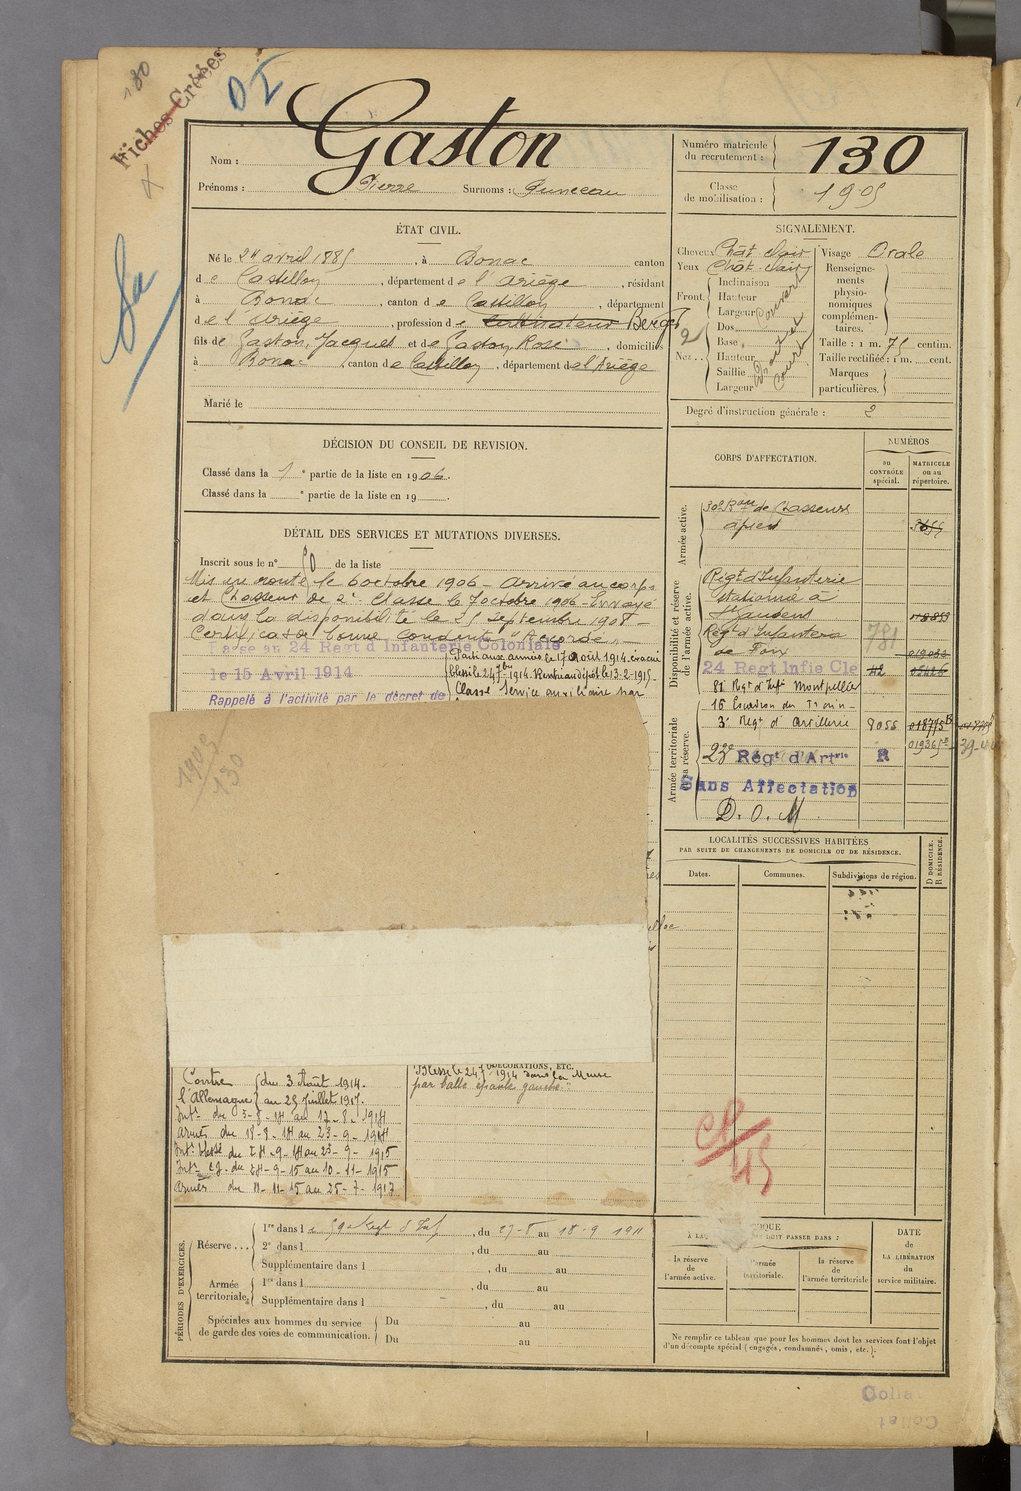 180
Fiches Créées
Gaston
Nom :
Prénoms : Pierre Surnoms :
Numéro matricule
du recrutement : 130
Classe
de mobilisation : 1905
ÉTAT CIVIL.
Né le 24 avril 1885, à Bonac canton
de Castillon, département de l'Ariège, résidant
à Bonac, canton de Castillon, département
de l'Ariège, profession de cultivateur Berger
fils de Gaston, Jacques et de Gaston Rose, domiciliés
à Bonac, canton de Castillon, département de l'Ariège
Marié le
SIGNALEMENT.
Cheveux Chât clair
Yeux Chât clair
Front. Inclinaison
Hauteur
Largeur
Nez Dos
Base
Hauteur
Saillie
Largeur
Visage Ovale
Renseigne-
ments
physio-
nomiques
complémen-
taires.
Taille : 1 m. 75 centim.
Taille rectifiée : 1 m. cent.
Marques
particulières.
Degré d'instruction générale : 2
DÉCISION DU CONSEIL DE REVISION.
Classé dans la 1e partie de la liste en 1906.
Classé dans la e partie de la liste en 19 .
CORPS D'AFFECTATION.
NUMÉROS
au
CONTRÔLE
spécial.
MATRICULE
ou au
répertoire.
Armée active.
30e Bon de Chasseurs
à pied
Disponibilité et réserve
de l'armée active.
Régt d'Infanterie
stationné à
St Gaudens
Régt d'Infanterie
de Foix
781
24 Regt Infie Cle
81 Régt d'Infie Montpellier
Armée territoriale
et sa réserve.
16 Escadron du Train
3e Régt d'Artillerie 8055
23e Régt d'Artrie R
Sans Affectation
D. O. M.
DÉTAIL DES SERVICES ET MUTATIONS DIVERSES.
Inscrit sous le n° 50 de la liste
Mis en route le 6 octobre 1906 - Arrivé au corps
et Chasseur de 2e Classe le 7 octobre 1906 - Envoyé
dans la disponibilité le 25 septembre 1908 -
Certificat de bonne conduite "Accordé"
Passé au 24 Regt d'Infanterie Coloniale
le 15 Avril 1914
Rappelé à l'activité par le décret de
Parti aux armées le 17 Août 1914. évacué
blessé le 24 7bre 1914. Rentré au dépôt le 13-2-1915 -
Classé service auxiliaire par
1905
130
LOCALITÉS SUCCESSIVES HABITÉES
PAR SUITE DE CHANGEMENTS DE DOMICILE OU DE RÉSIDENCE.
Dates.
Communes.
Subdivisions de région.
D DOMICILE.
R RÉSIDENCE.
DÉCORATIONS, ETC.
Contre
l'Allemagne
du 3 Août 1914.
au 25 Juillet 1917.
Intr du 3-8-14 au 17-8-1914
Armées du 18-8-14 au 23-9-1914
Intr blessé du 24-9-14 au 23-9-1915
Intr cg. du 24-9-15 au 10-11-1915
Armées du 11-11-15 au 25-7-1917
Blessé le 24 7bre 1914 dans la Meuse
par balle épaule gauche."
cl/45
PÉRIODES D'EXERCICES.
Réserve ...
1re dans le 59e Regt d'Inf, du 27-8 au 18-9 1911
2e dans l , du au
Supplémentaire dans l , du au
Armée
territoriale.
1re dans l , du au
Supplémentaire dans l , du au
Spéciales aux hommes du service
de garde des voies de communication.
Du au
Du au
DOIT PASSER DANS :
la réserve
de
l'armée active.
l'armée
territoriale.
la réserve
de
l'armée territoriale
DATE
de
LA LIBÉRATION
du
service militaire.
Ne remplir ce tableau que pour les hommes dont les services font l'objet
d'un décompte spécial (engagés, condamnés, omis, etc.).
Collat
Collat